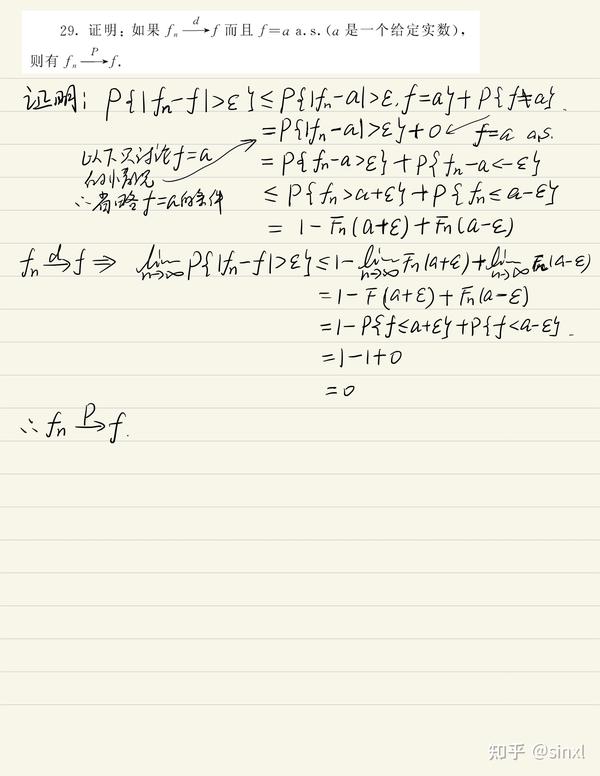 29. 证明：如果 fₙ —d→ f 而且 f=a a.s.(a 是一个给定实数)，
则有 fₙ —P→ f.
证明: P{|fₙ-f|>ε} ≤ P{|fₙ-a|>ε, f=a} + P{f≠a}.
= P{|fₙ-a|>ε} + 0 ↙ f=a a.s.
以下只讨论 f=a
的情况
∴省略 f=a 的条件
= P{fₙ-a>ε} + P{fₙ-a<-ε}
≤ P{fₙ>a+ε} + P{fₙ≤a-ε}
= 1 - Fₙ(a+ε) + Fₙ(a-ε)
fₙ —d→ f ⇒ lim n→∞ P{|fₙ-f|>ε} ≤ 1 - lim n→∞ Fₙ(a+ε) + lim n→∞ Fₙ(a-ε)
= 1 - F(a+ε) + Fₙ(a-ε)
= 1 - P{f≤a+ε} + P{f<a-ε}.
= 1-1+0
= 0
∴ fₙ —P→ f.
知乎 @sinxl